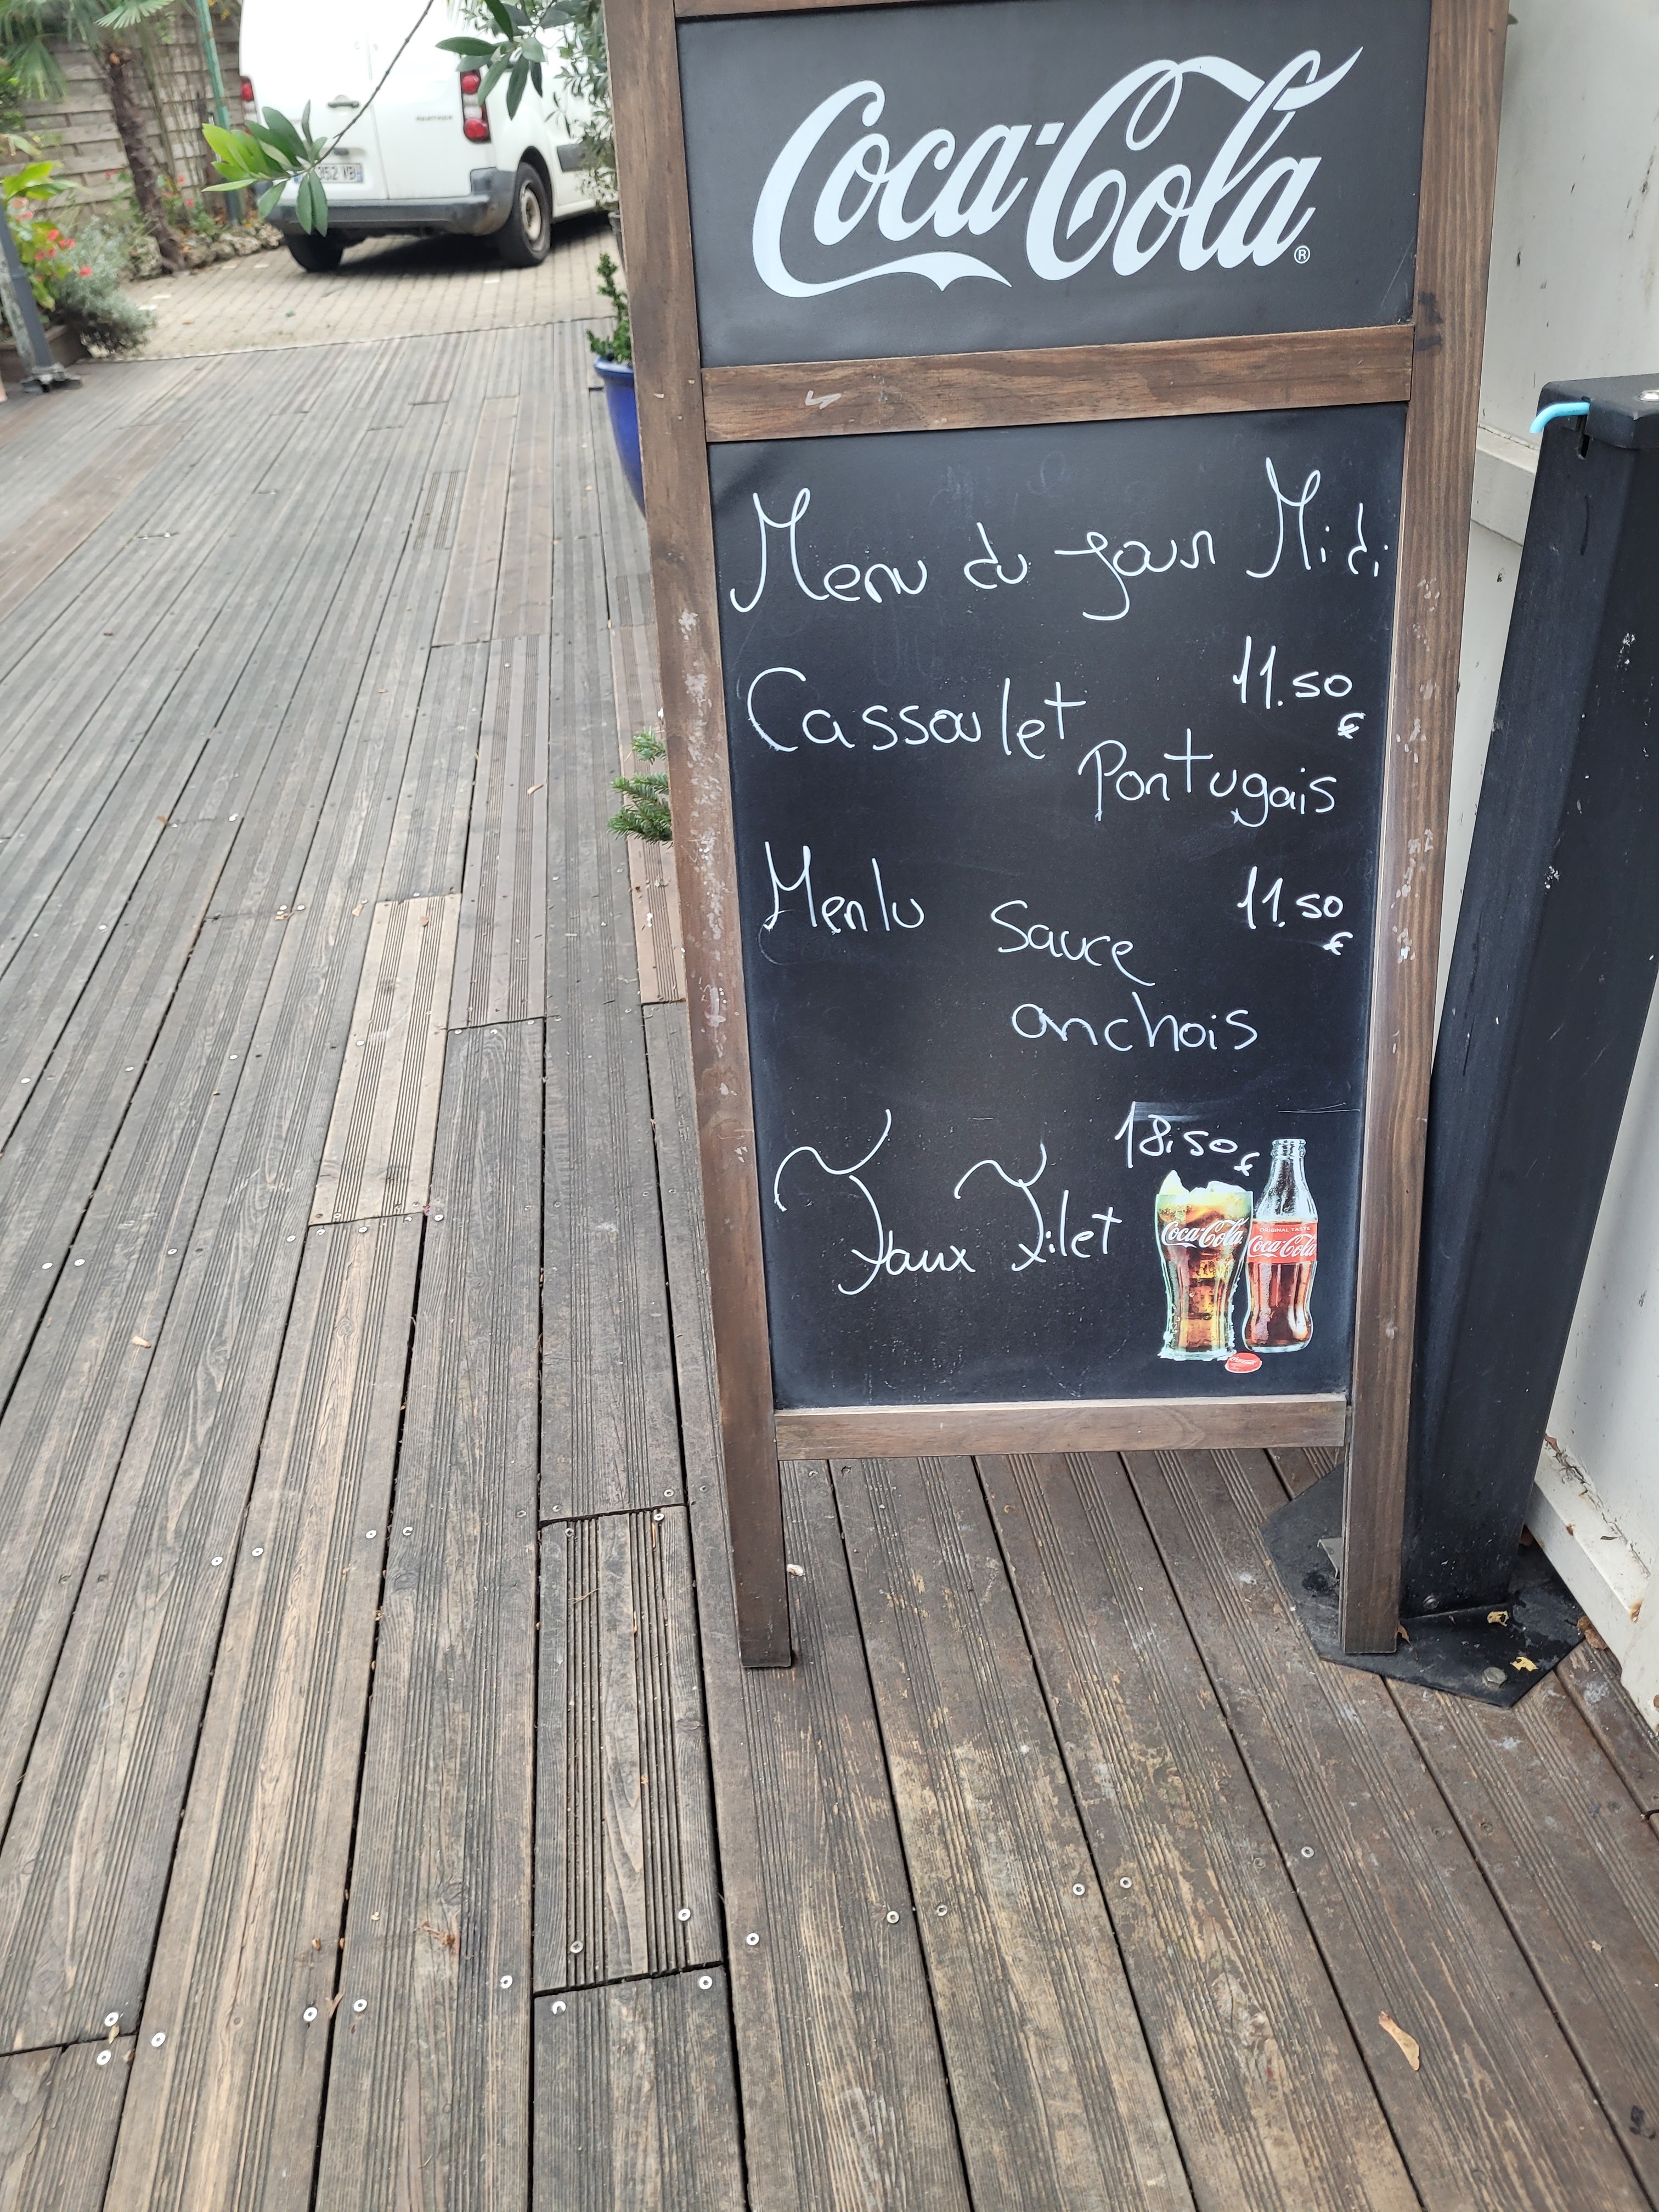 Coca-Cola®
Menu du jour Midi
Cassoulet 11.50 €
Portugais
Merlu 11.50 €
Sauce
anchois
Faux Filet 18.50 €
Coca-Cola
ORIGINAL TASTE
Coca-Cola
PARTNER